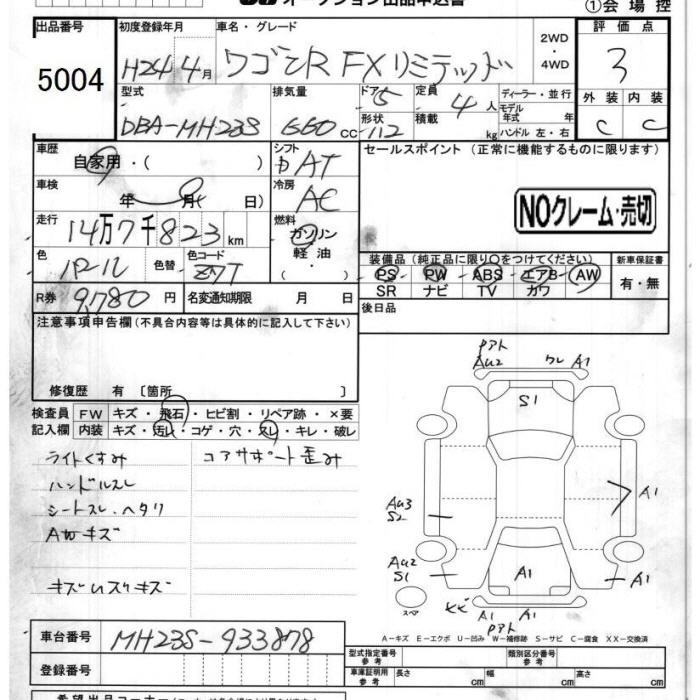 オークション出品申込書
①会場控
出品番号 初度登録年月 車名・グレード 2WD ・ 4WD 評価点
5004 H24 4月 ワゴンR FXリミテッド 3
型式 排気量 ドア 5 定員 4人 ディーラー・並行 外装 内装
DBA-MH23S 660cc 形状 112 積載 kg モデル年式 年 ハンドル 左・右 C C
車歴 シフト セールスポイント (正常に機能するものに限ります)
自家用・( ) AT
車検 冷房
年 月( 日) AC NOクレーム・売切
走行 燃料
14万7千823km ガソリン
色 色替 色コード 軽油・ 装備品(純正品に限り○をつけてください) 新車保証書
パール Z7T ( ) PS PW ABS エアB AW 有・無
SR ナビ TV カワ
R券 9,780円 名変通知期限 月 日 後日品
注意事項申告欄(不具合内容等は具体的に記入して下さい)
修復歴 有〔箇所 〕
検査員 FW キズ・飛石・ヒビ割・リペア跡・×要
記入欄 内装 キズ・汚れ・コゲ・穴・スレ・キレ・破レ
ライトくすみ コアサポート歪み
ハンドルスレ
シートスレ・ヘタリ
A切キズ
キズUスリキズ
Pアト
AU2 ワレ A1
S1
A1
AU3
S2
AU2
S1 A1 A1
スペア A1 A1
Pアト
A-キズ E-エクボ U-凹み W-補修跡 S-サビ C-腐食 XX-交換済
車台番号 MH23S-933878
型式指定番号 参考 類別区分番号 参考
登録番号 車庫証明用 参考 長さ cm 幅 cm 高さ cm
希望出品コーナー